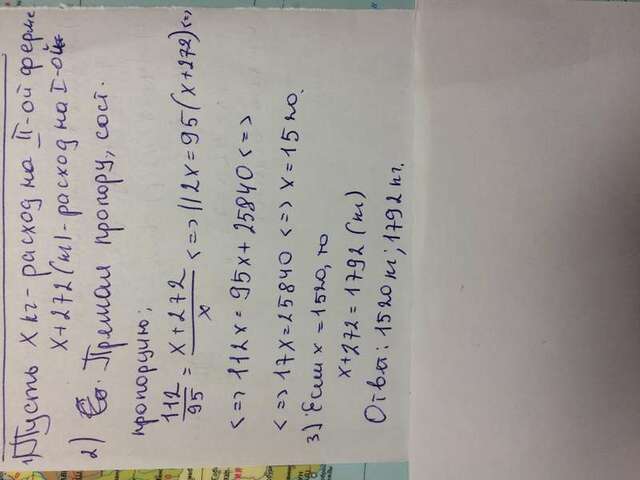 1) Пусть x кг - расход на II-ой ферме
x+272 (кг) - расход на I-ой
2) Прямая пропорц, сост.
пропорцию;
112/95 = x+272/x <=> 112x = 95(x+272) <=>
<=> 112x = 95x + 25840 <=>
<=> 17x = 25840 <=> x = 1520.
3) Если x = 1520, то
x+272 = 1792 (кг)
Ответ: 1520 кг; 1792 кг.